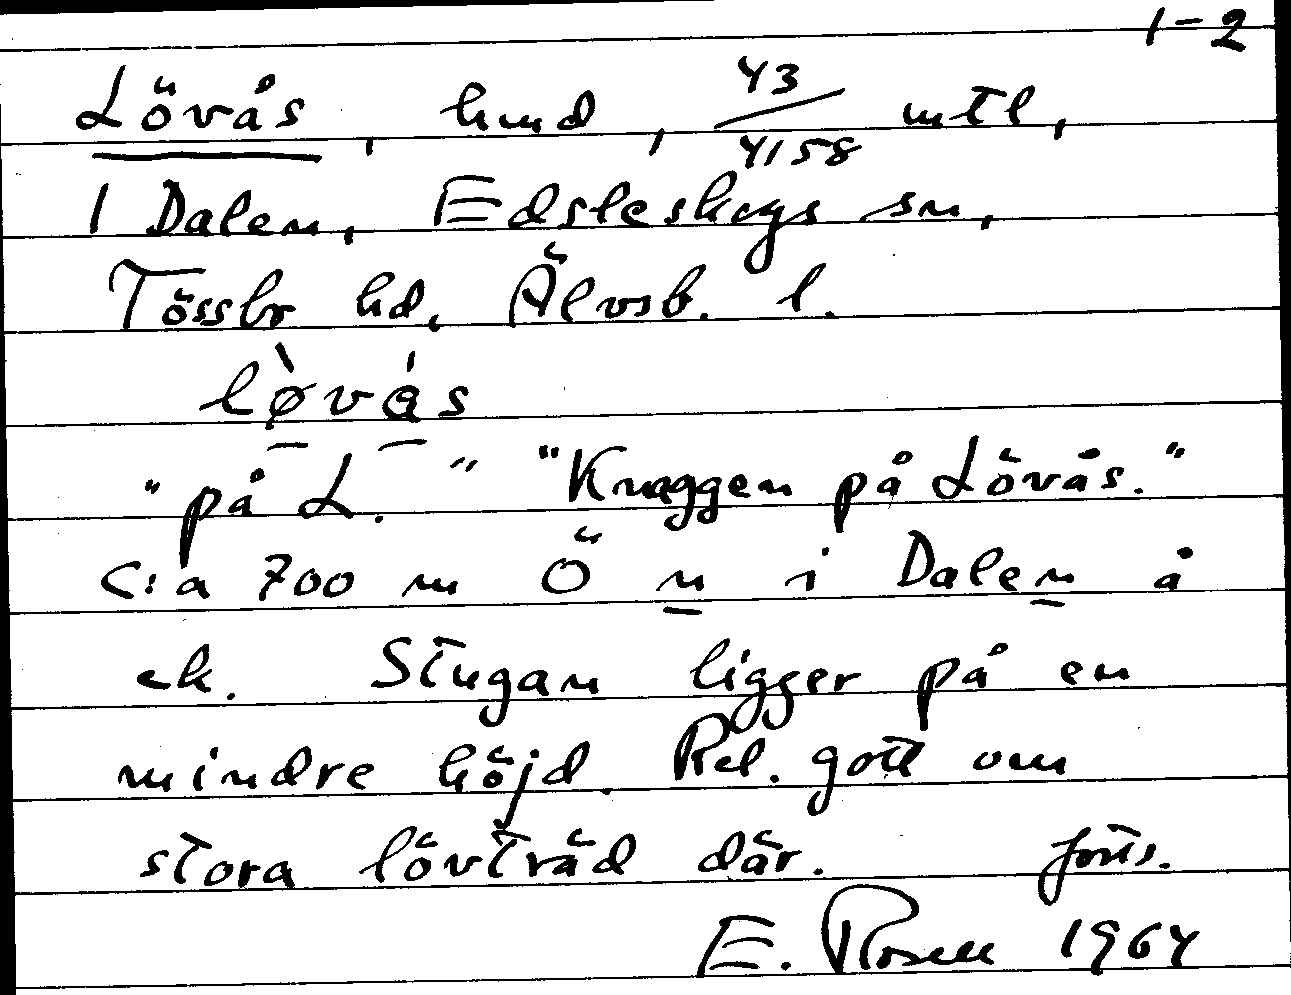 1-2
Lövås, hmd, 43/4158 mtl,
1 Dalen, Edsleskogs sn,
Tössbo hd, Älvsb. l.
lø̀vǻs
"på L." "Knaggen på Lövås."
C:a 700 m Ö n i Dalen å
ek. Stugan ligger på en
mindre höjd. Rel. gott om
stora lövträd där. forts.
E. Rosell 1964